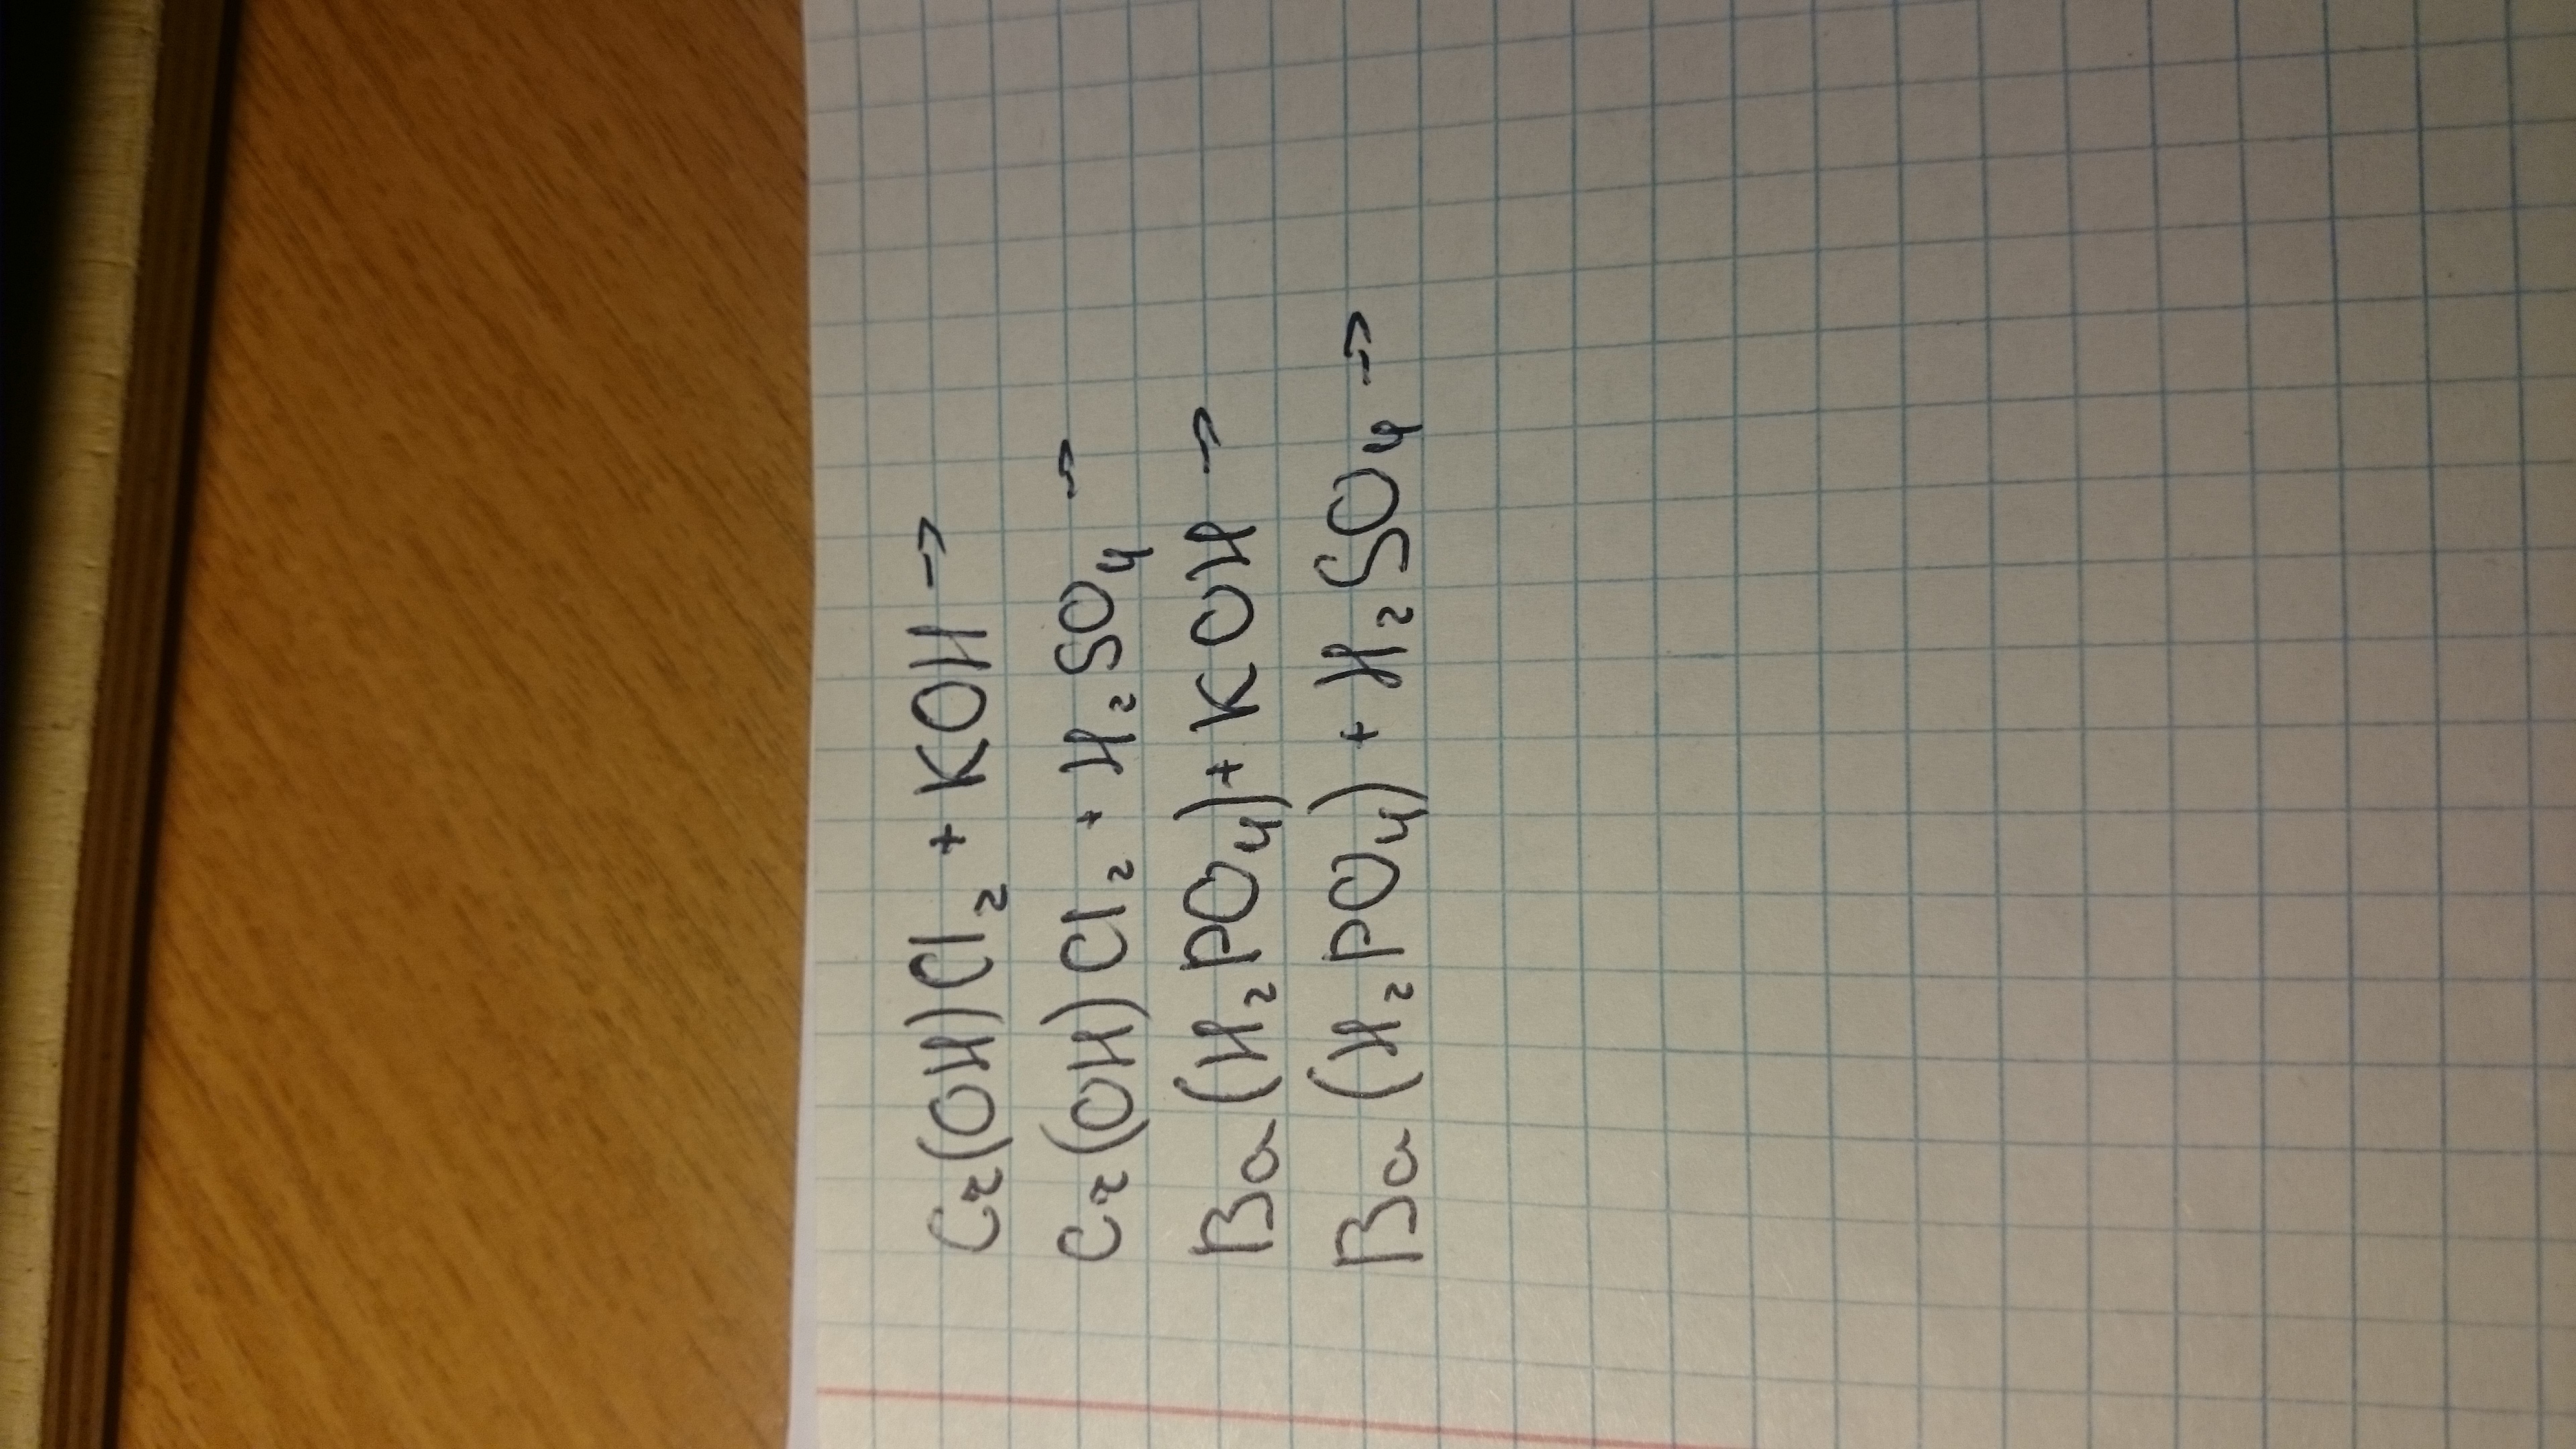 Cr(OH)Cl₂ + KOH →
Cr(OH)Cl₂ + H₂SO₄ →
Ba(H₂PO₄) + KOH →
Ba(H₂PO₄) + H₂SO₄ →